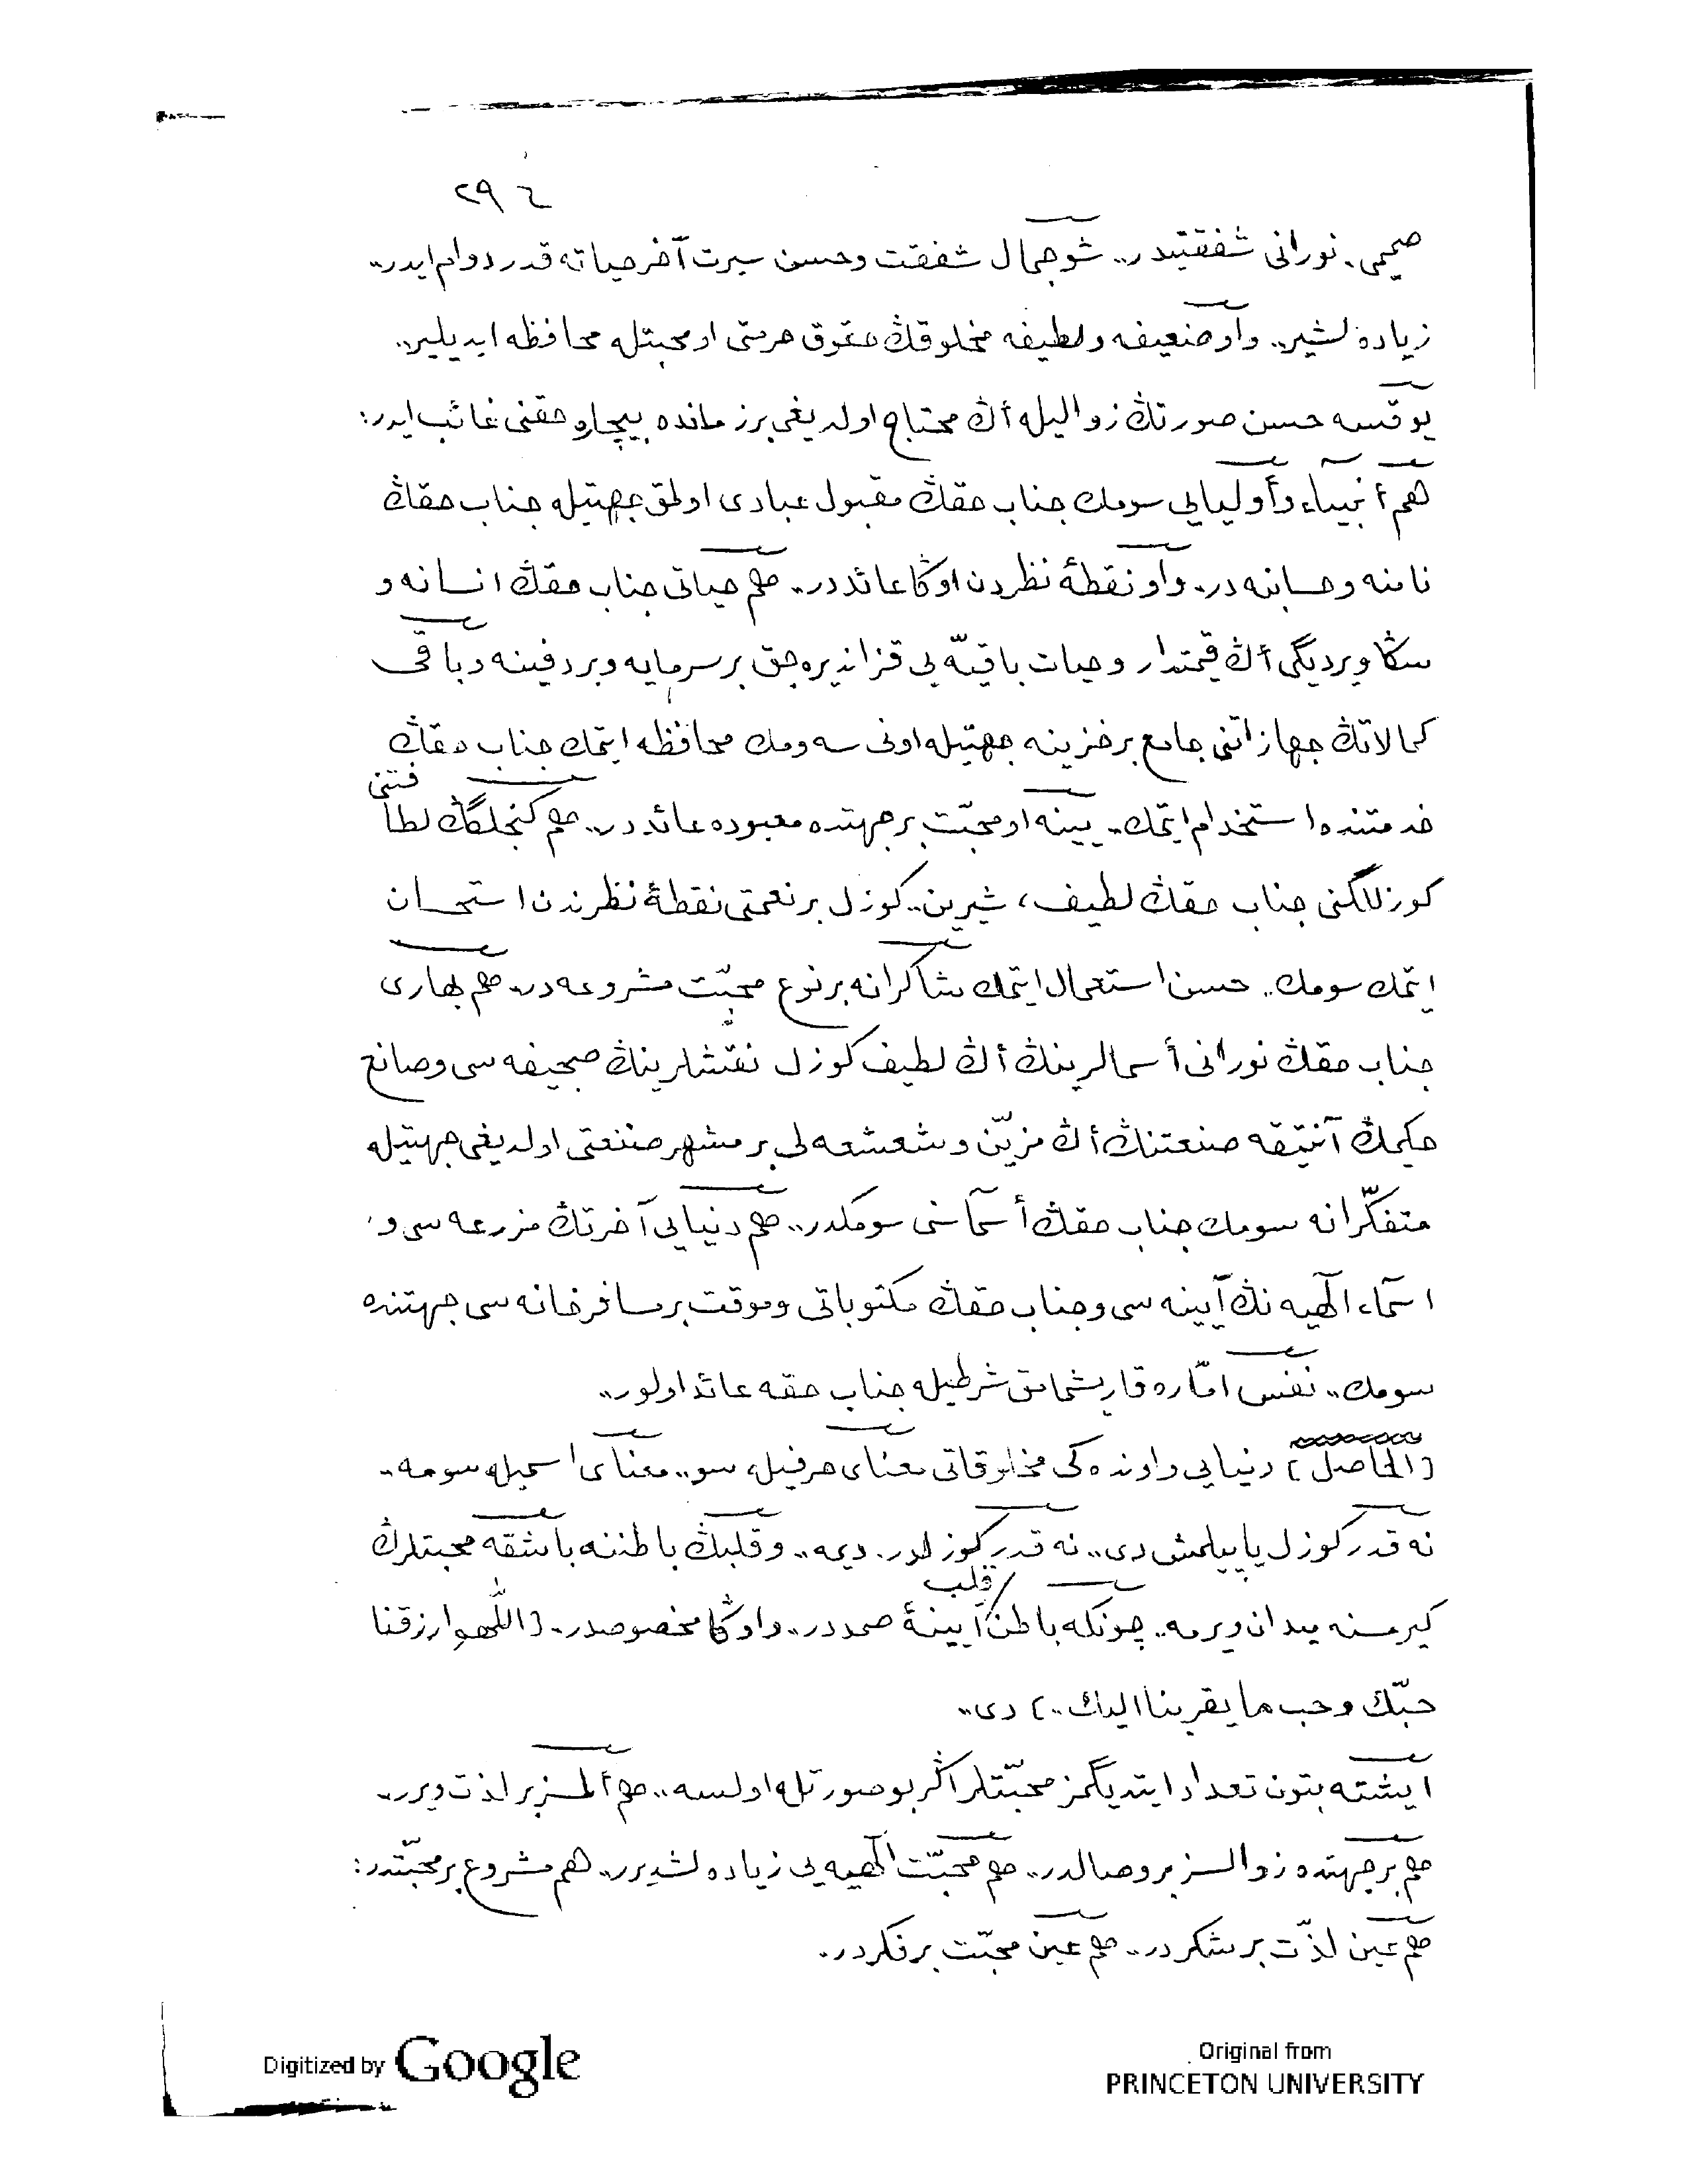 ٢٩٤
صميمى، نورانى شفقتيدر.. شو جمال شفقت وحسن سيرت آخر حياته قدر دوام ايدر..
زياده لشير.. واو ضعيفه ولطيفه مخلوقڭ حقوق حرمتى او محبتله محافظه ايديلير..
يوقسه حسن صورتڭ زواليله أڭ محتاج اولديغى برزمانده بيچاره حقنى غائب ايدر:
هم أنبياء وأوليايى سومك جناب حقڭ مقبول عبادى اولمق جهتيله جناب حقڭ
نامنه وحسابنه در. واو نقطۀ نظردن اوڭا عائددر.. هم حياتى جناب حقڭ انسانه و
سڭا ويرديگى أڭ قيمتدار وحيات باقيّه يى قزانديره جق برسرمايه وبردفينه وباقى
كمالاتڭ جهازاتنى جامع برخزينه جهتيله اونى سه ومك محافظه ايتمك جناب حقڭ
خدمتنده استخدام ايتمك.. يينه او محبّت برجهتده معبوده عائددر.. هم كنجلگڭ لطافتنى
كوزللگنى جناب حقڭ لطيف، شيرين.. كوزل برنعمتى نقطۀ نظرندن استحسان
ايتمك سومك.. حسن استعمال ايتمك شاكرانه برنوع محبّت مشروعه در. هم بهارى
جناب حقڭ نورانى أسمالرينڭ أڭ لطيف كوزل نقشلرينڭ صحيفه سى وصانع
حكيمڭ آنتيقه صنعتنڭ أڭ مزيّن وشعشعه لى برمشهر صنعتى اولديغى جهتيله
متفكّرانه سومك جناب حقڭ أسمآسنى سومكدر.. هم دنيايى آخرتڭ مزرعه سى و
اسمآء الٓهيه نڭ آيينه سى وجناب حقڭ مكتوباتى وموقت برمسافرخانه سى جهتنده
سومك.. نفس امّاره قاريشمامق شرطيله جناب حقه عائد اولور..
[الحاصل] دنيايى واونده كى مخلوقاتى معناى حرفيله سو.. معناى اسميله سومه..
نه قدر كوزل ياپيلمش دى.. نه قدر كوزلدر. ديمه.. وقلبڭ باطننه باشقه محبتلرڭ
كيرمسنه ميدان ويرمه.. چونكه باطن قلب آيينۀ صمددر.. واوڭا مخصوصدر. [اللّهم ارزقنا
حبّك وحب ما يقربنا اليك..] دى..
ايشته بتون تعداد ايتديگمز محبّتلر اگر بو صورتله اولسه.. هم ألمسز برلذت ويرر..
هم برجهتده زوالسز بروصالدر.. هم محبّت الٓهيه يى زياده لشديرر.. هم مشروع برمحبّتدر:
هم عين لذّت برشكردر.. هم عين محبّت برفكردر.
Digitized by Google
Original from
PRINCETON UNIVERSITY